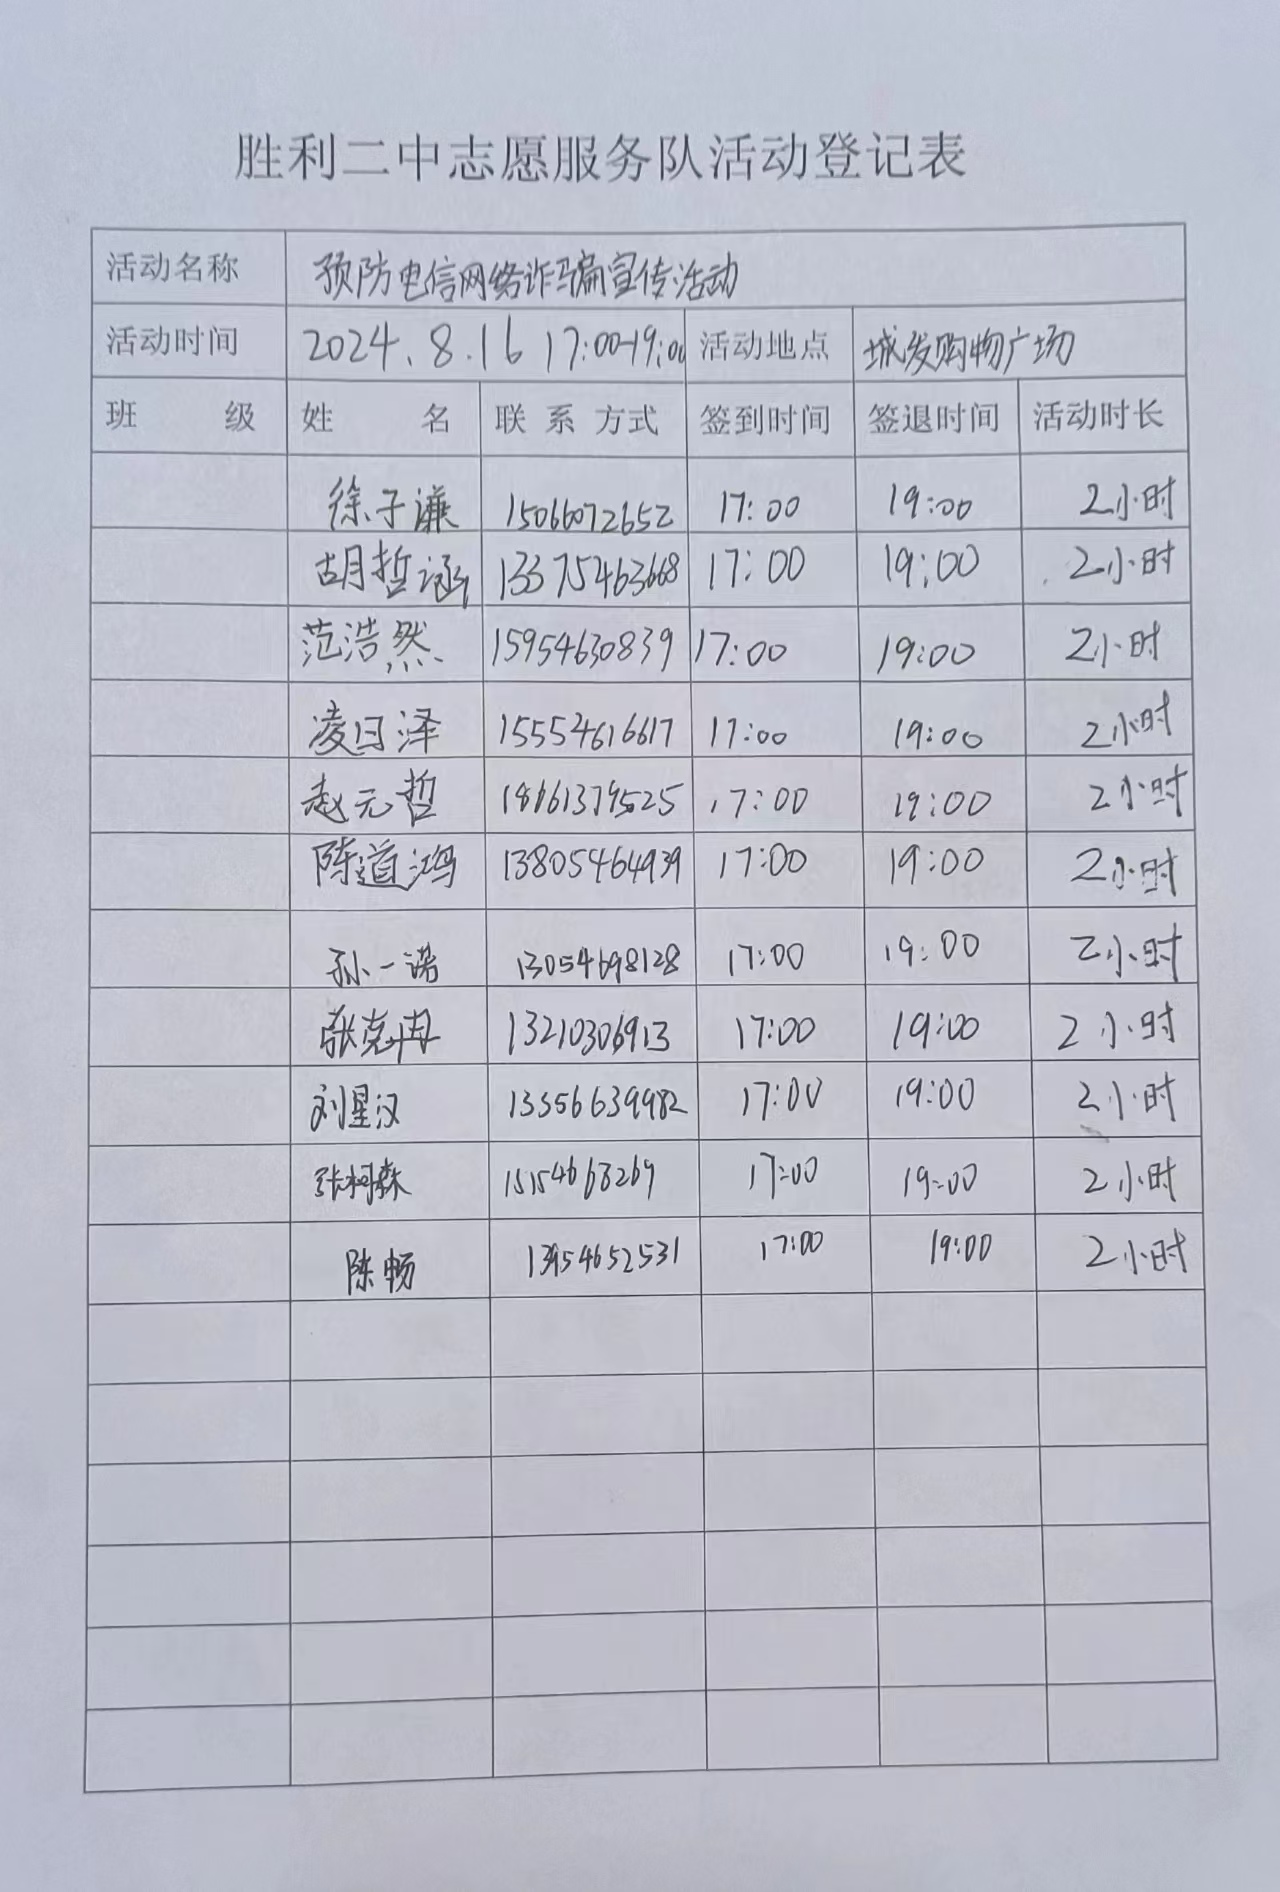 胜利二中志愿服务队活动登记表
活动名称 预防电信网络诈骗宣传活动
活动时间 2024.8.16 17:00-19:00 活动地点 城发购物广场
班 级 姓 名 联系方式 签到时间 签退时间 活动时长
徐子谦 15066072652 17:00 19:00 2小时
胡哲涵 13375463668 17:00 19:00 2小时
范浩然 15954630839 17:00 19:00 2小时
凌日泽 15554616617 17:00 19:00 2小时
赵元哲 18661379525 17:00 19:00 2小时
陈道鸿 13805464939 17:00 19:00 2小时
孙一诺 13054698128 17:00 19:00 2小时
张克冉 13210306913 17:00 19:00 2小时
刘星汉 13356639982 17:00 19:00 2小时
张柯森 17:00 19:00 2小时
陈畅 13954652531 17:00 19:00 2小时